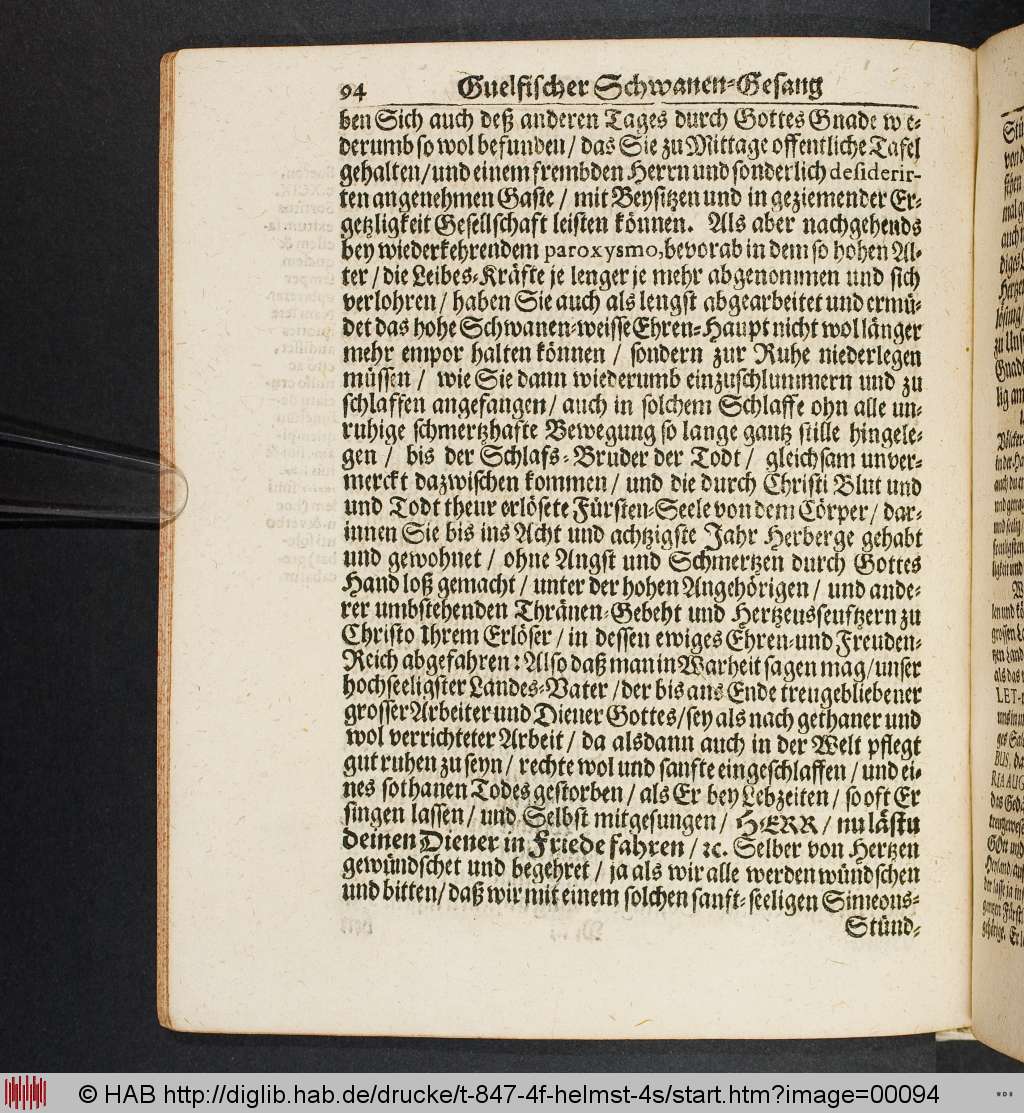 94 Guelfischer Schwanen-Gesang
ben Sich auch deß anderen Tages durch Gottes Gnade wie-
derumb so wol befunden / das Sie zu Mittage offentliche Tafel
gehalten / und einem frembden Herrn und sonderlich desiderir-
ten angenehmen Gaste / mit Beysitzen und in geziemender Er-
getzligkeit Gesellschaft leisten können. Als aber nachgehends
bey wiederkehrendem paroxysmo, bevorab in dem so hohen Al-
ter / die Leibes-Kräfte je lenger je mehr abgenommen und sich
verlohren / haben Sie auch als lengst abgearbeitet und ermü-
det das hohe Schwanen-weisse Ehren-Haupt nicht wol länger
mehr empor halten können / sondern zur Ruhe niederlegen
müssen / wie Sie dann wiederumb einzuschlummern und zu
schlaffen angefangen / auch in solchem Schlaffe ohn alle un-
ruhige schmertzhafte Bewegung so lange gantz stille hingele-
gen / bis der Schlafs-Bruder der Todt / gleichsam unver-
merckt dazwischen kommen / und die durch Christi Blut und
und Todt theur erlösete Fürsten-Seele von dem Cörper / dar-
innen Sie bis ins Acht und achtzigste Jahr Herberge gehabt
und gewohnet / ohne Angst und Schmertzen durch Gottes
Hand loß gemacht / unter der hohen Angehörigen / und ande-
rer umbstehenden Thränen-Gebeht und Hertzensseuftzern zu
Christo Ihrem Erlöser / in dessen ewiges Ehren-und Freuden-
Reich abgefahren: Also daß man in Warheit sagen mag / unser
hochseeligster Landes-Vater / der bis ans Ende treugebliebener
grosser Arbeiter und Diener Gottes / sey als nach gethaner und
wol verrichteter Arbeit / da alsdann auch in der Welt pflegt
gut ruhen zu seyn / rechte wol und sanfte eingeschlaffen / und ei-
nes sothanen Todes gestorben / als Er bey Lebzeiten / so oft Er
singen lassen / und Selbst mitgesungen / HERR / nu lästu
deinen Diener in Friede fahren / ꝛc. Selber von Hertzen
gewündschet und begehret / ja als wir alle werden wündschen
und bitten / daß wir mit einem solchen sanft-seeligen Simeons-
Stünd-
© HAB http://diglib.hab.de/drucke/t-847-4f-helmst-4s/start.htm?image=00094